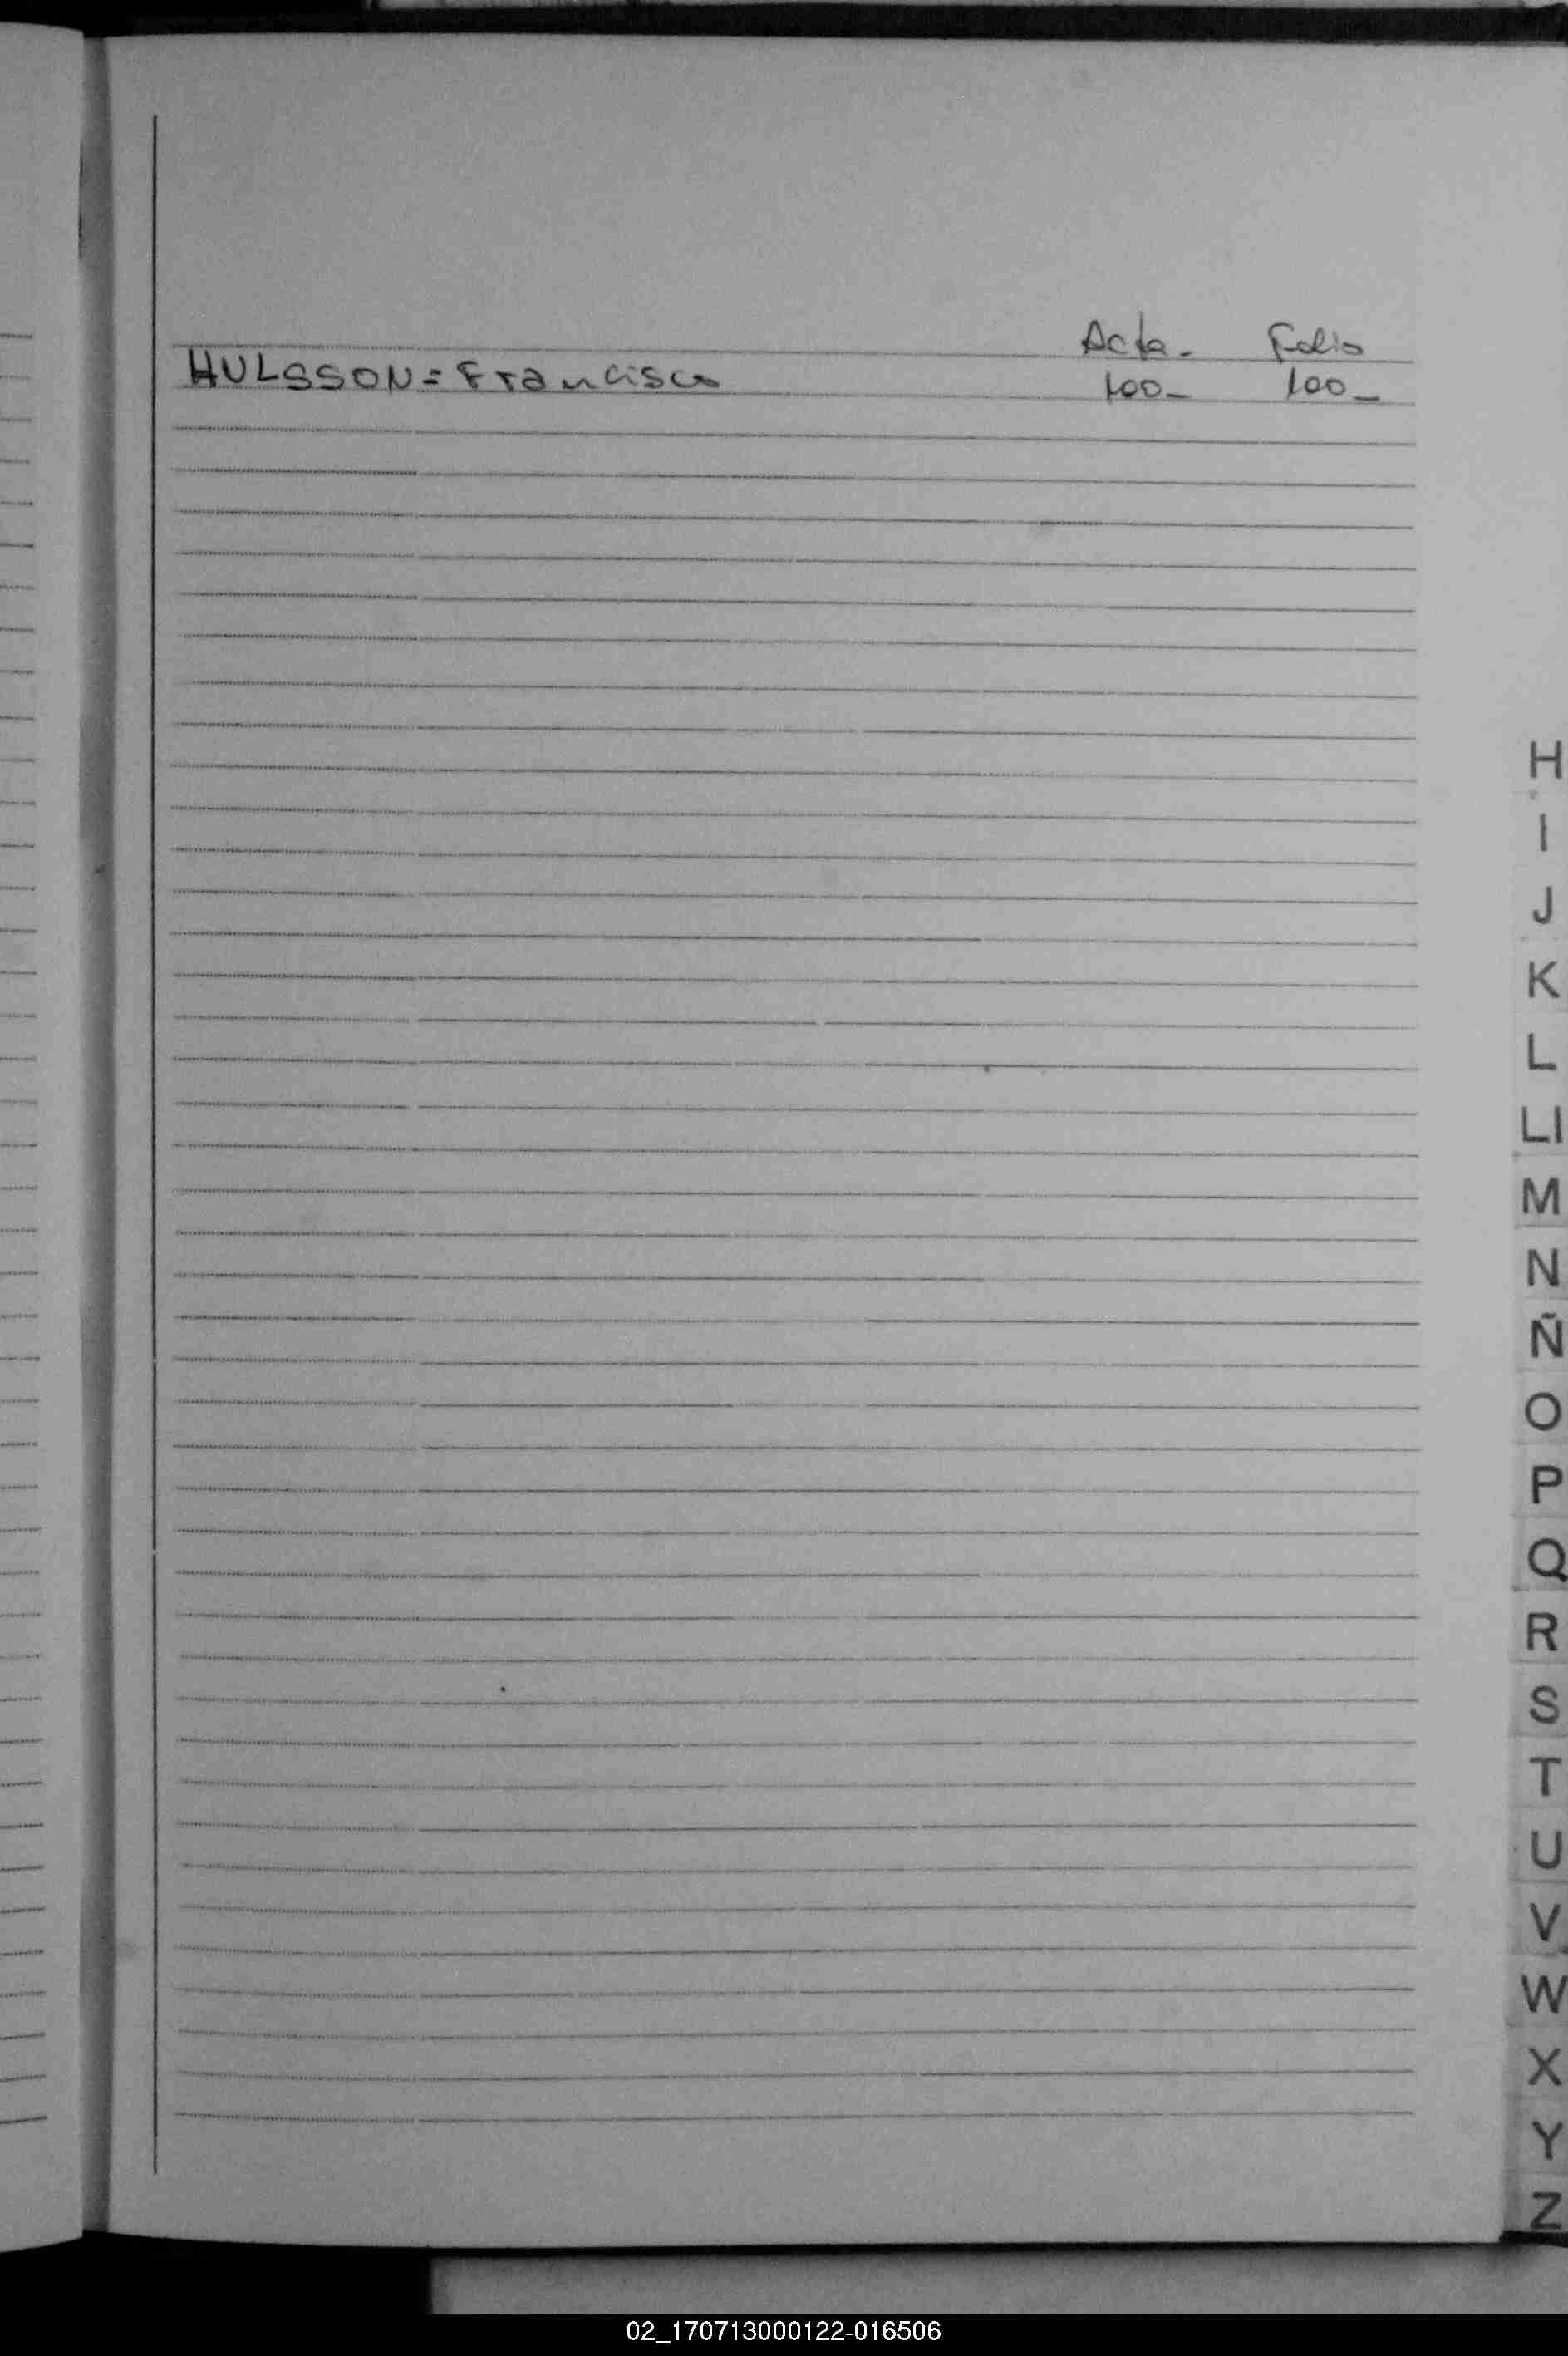 Acta- Folio
HULSSON = Francisco 100- 100-
H
I
J
K
L
Ll
M
N
Ñ
O
P
Q
R
S
T
U
V
W
X
Y
Z
02_170713000122-016506